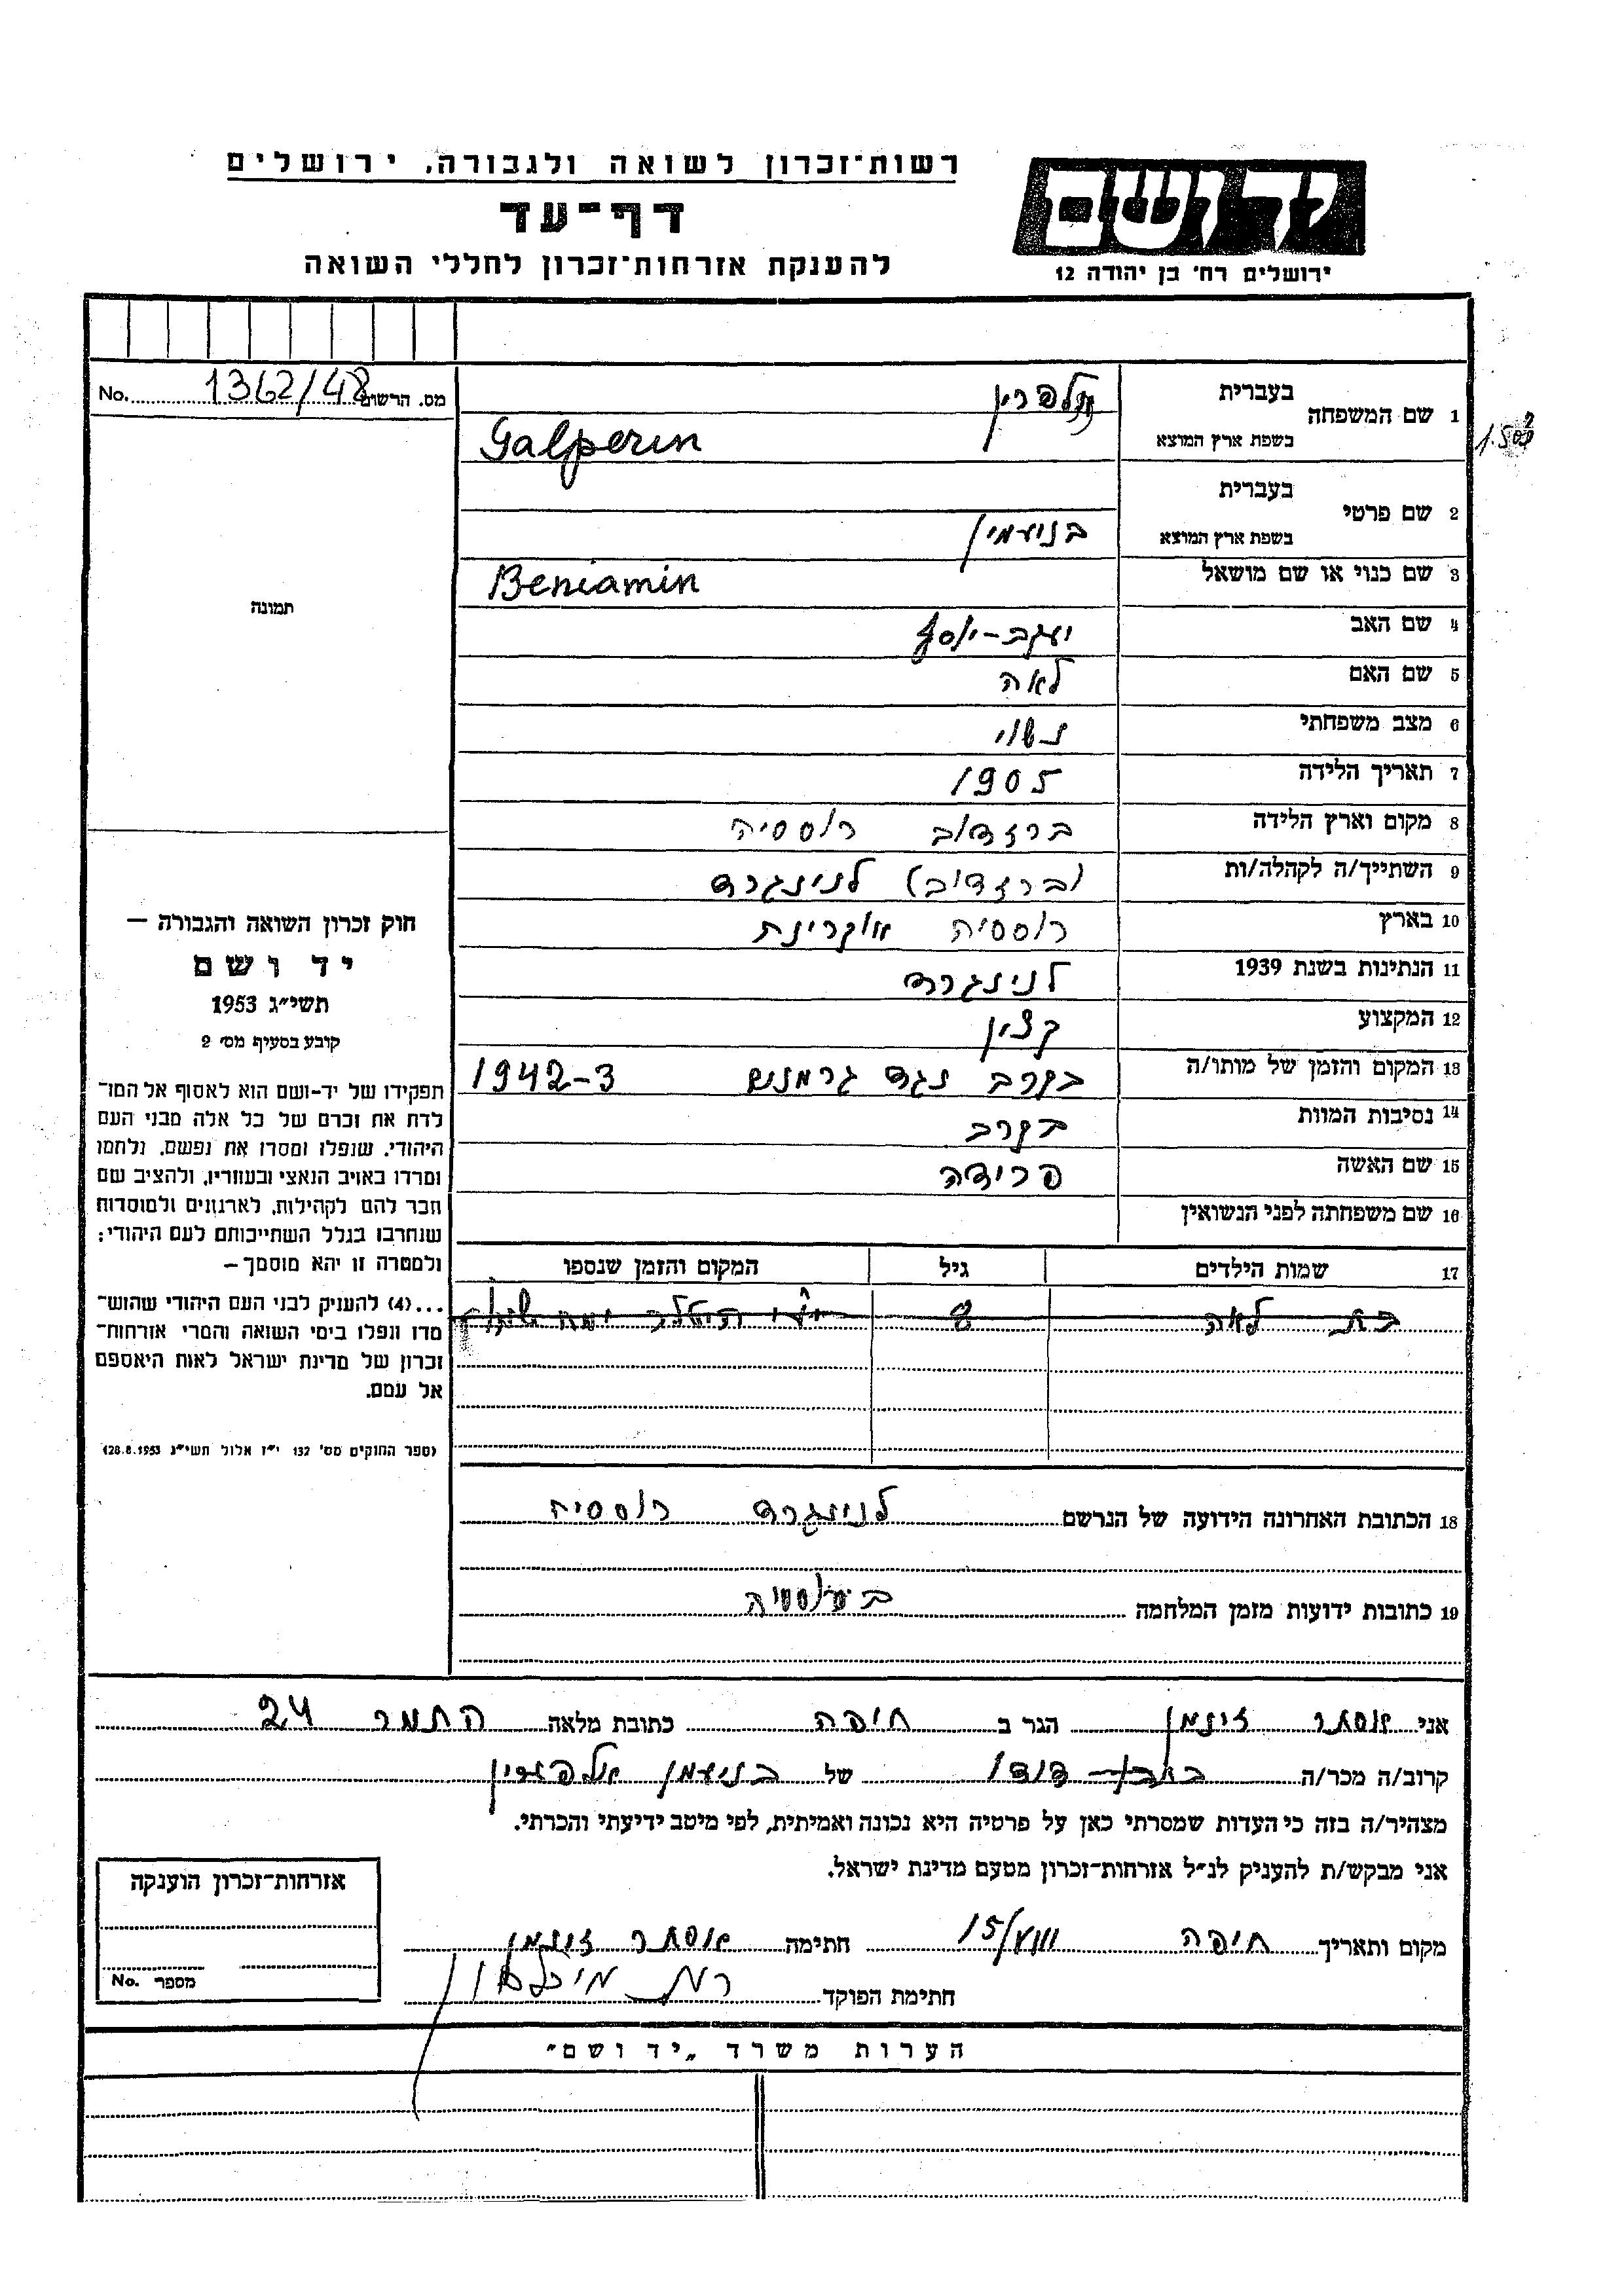 רשות־זכרון לשואה ולגבורה, ירושלים
דף־עד
להענקת אזרחות־זכרון לחללי השואה
יד ושם
ירושלים רח' בן יהודה 12
No. 1362/48 מס. הרשום
1 שם המשפחה בעברית
בשפת ארץ המוצא Galperin
2 שם פרטי בעברית
בשפת ארץ המוצא בנימין
3 שם כנוי או שם מושאל Beniamin
4 שם האב יעקב-יוסף
5 שם האם לאה
6 מצב משפחתי נשוי
7 תאריך הלידה 1905
8 מקום וארץ הלידה ברזדוב רוססיה
9 השתייך/ה לקהלה/ות (ברזדוב) לנינגרד
10 בארץ רוססיה אוקרינת
11 הנתינות בשנת 1939 לנינגרד
12 המקצוע קצין
13 המקום והזמן של מותו/ה בקרב נגד גרמנים 1942-3
14 נסיבות המוות בקרב
15 שם האשה פרידה
16 שם משפחתה לפני הנשואין
17 שמות הילדים גיל המקום והזמן שנספו
בת לאה 8
18 הכתובת האחרונה הידועה של הנרשם לנינגרד רוססיה
19 כתובות ידועות מזמן המלחמה
תמונה
חוק זכרון השואה והגבורה —
יד ושם
תשי"ג 1953
קובע בסעיף מס' 2
תפקידו של יד-ושם הוא לאסוף אל המו־
לדת את זכרם של כל אלה מבני העם
היהודי, שנפלו ומסרו את נפשם, נלחמו
ומרדו באויב הנאצי ובעוזריו, ולהציב שם
וזכר להם לקהילות, לארגונים ולמוסדות
שנחרבו בגלל השתייכותם לעם היהודי;
ולמטרה זו יהא מוסמך —
...(4) להעניק לבני העם היהודי שהוש־
מדו ונפלו בימי השואה והמרי אזרחות־
זכרון של מדינת ישראל לאות היאספם
אל עמם.
(ספר החוקים מס' 132 י"ז אלול תשי"ג 28.8.1953)
אני אסתר זיגמן הגר ב חיפה כתובת מלאה התמר 24
קרוב/ה מכר/ה דודו של
מצהיר/ה בזה כי העדות שמסרתי כאן על פרטיה היא נכונה ואמיתית, לפי מיטב ידיעתי והכרתי.
אני מבקש/ת להעניק לנ"ל אזרחות־זכרון מטעם מדינת ישראל.
מקום ותאריך חיפה 15/VIII חתימה אסתר זיגמן
חתימת הפוקד
אזרחות־זכרון הוענקה
מספר No.
הערות משרד „יד ושם"